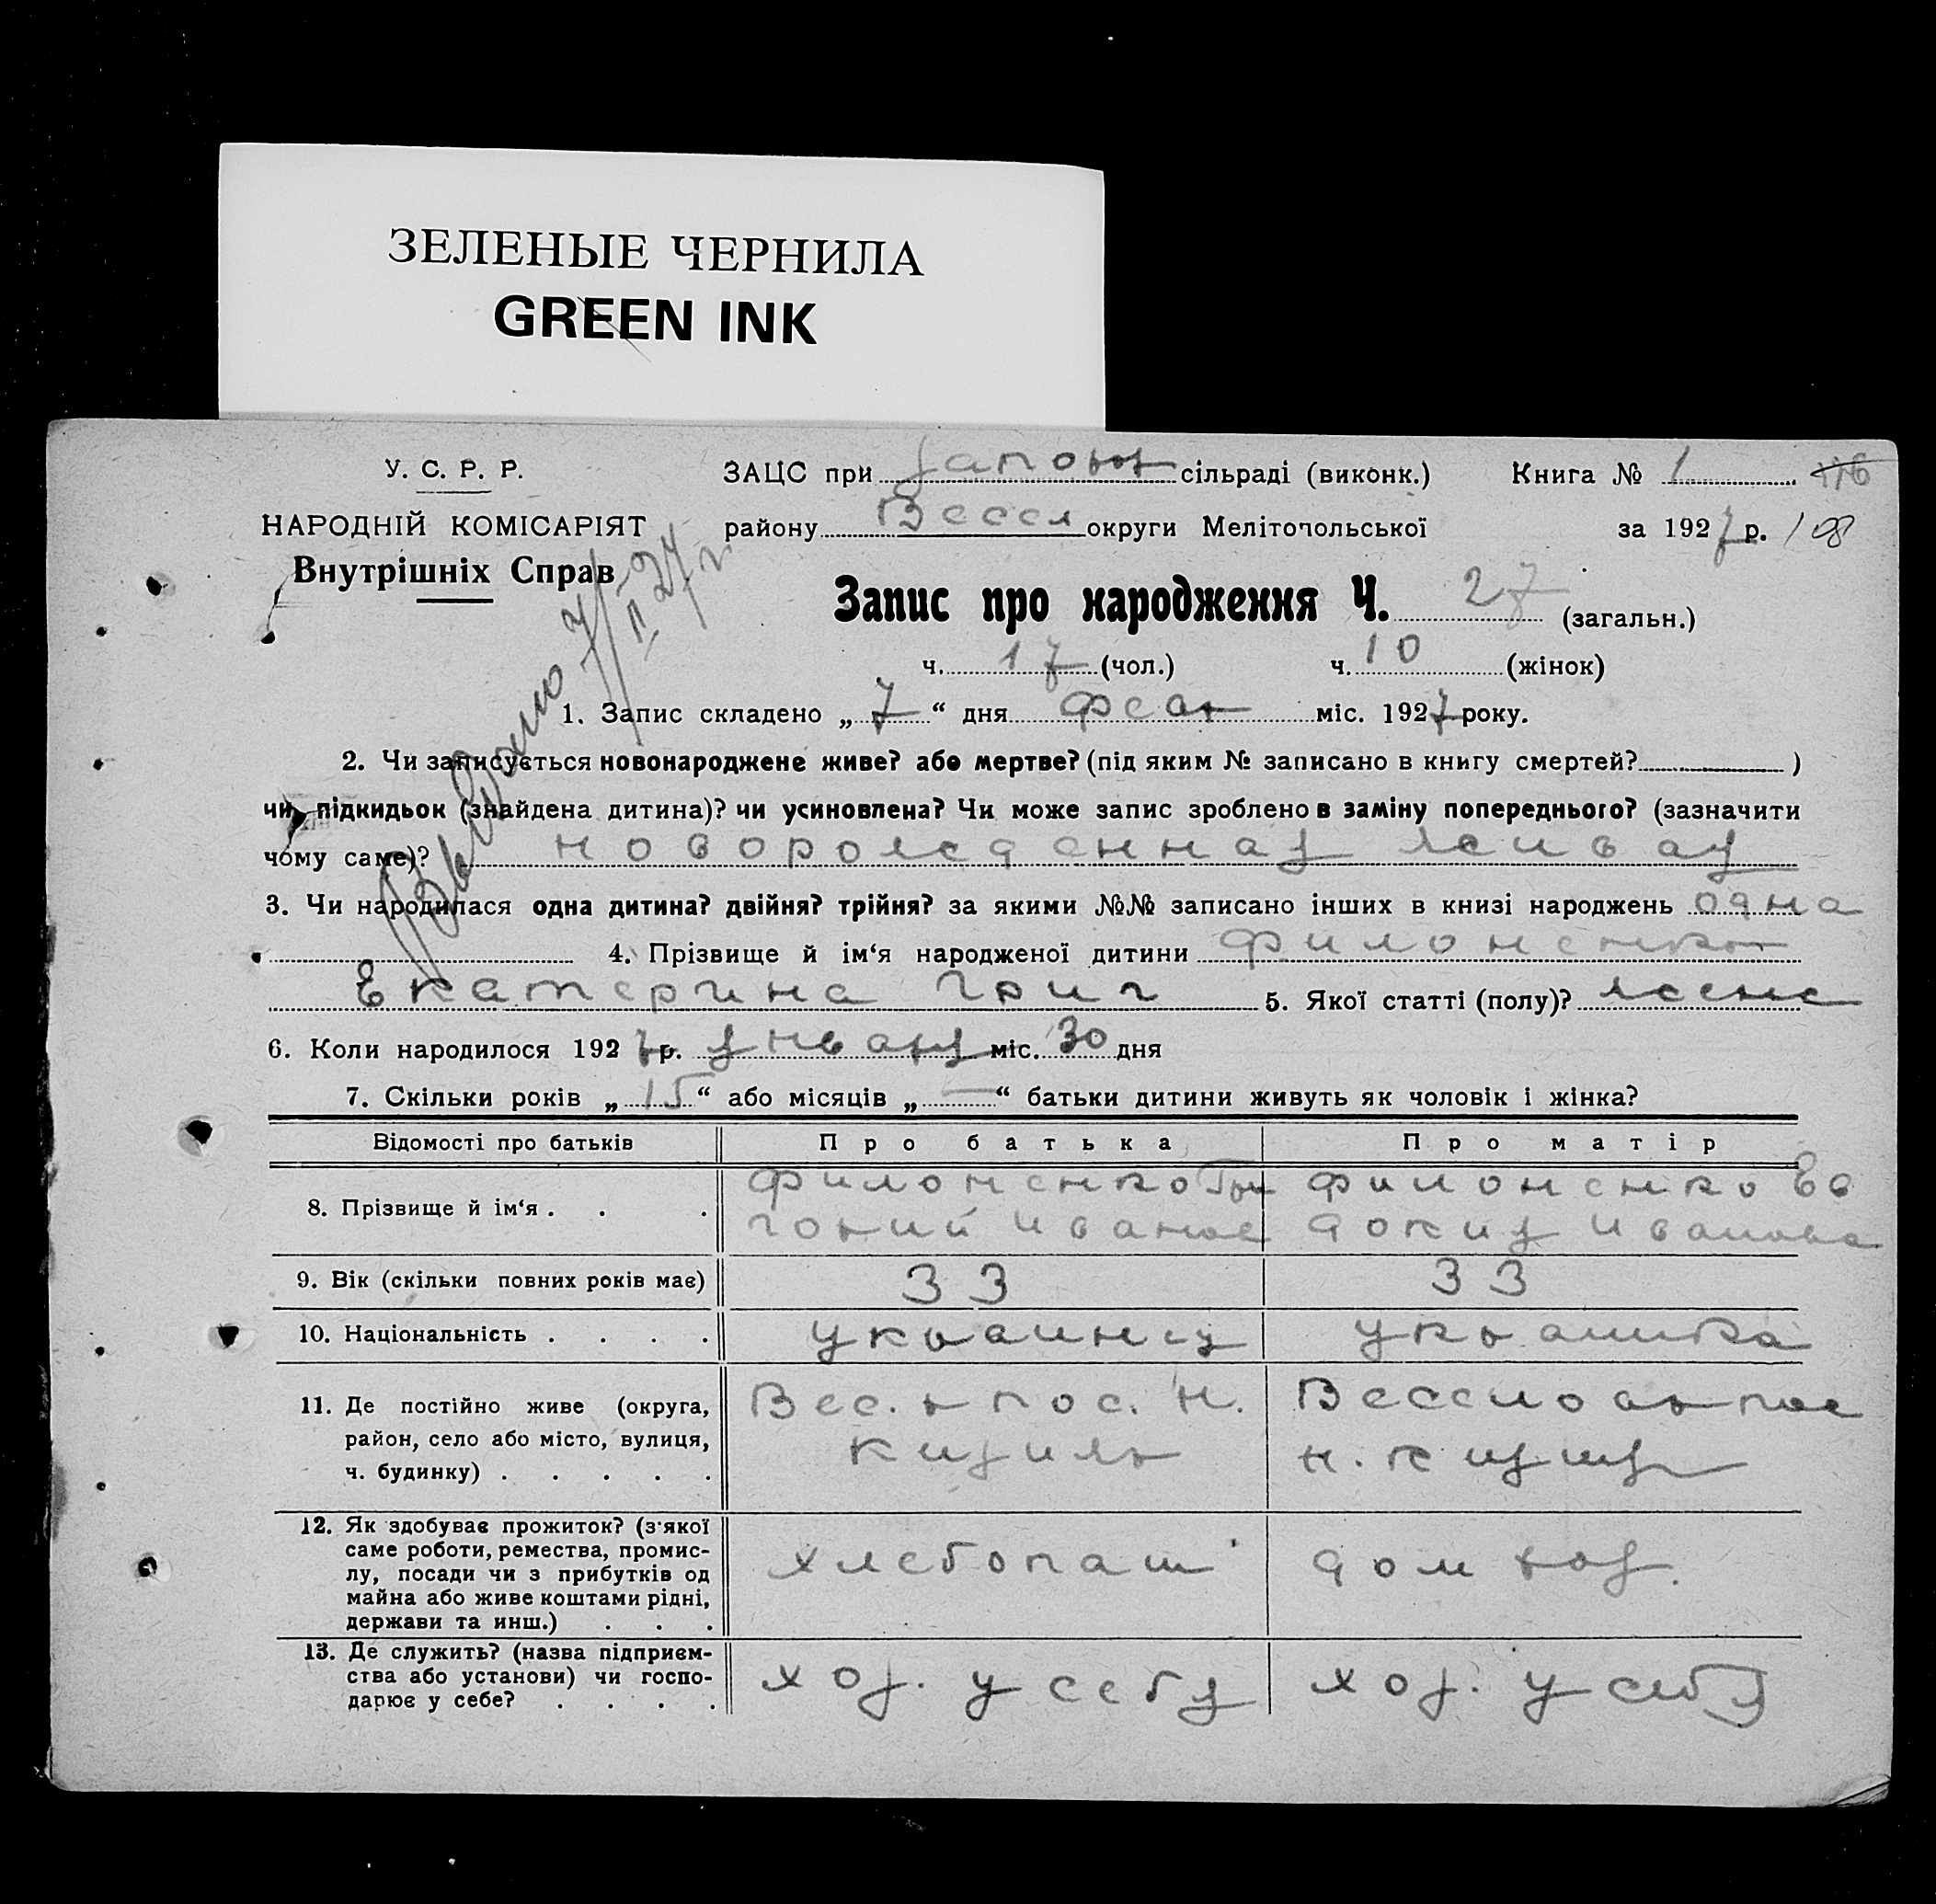 ЗЕЛЕНЫЕ ЧЕРНИЛА
GREEN INK
У. С. Р. Р.
НАРОДНІЙ КОМІСАРІЯТ
Внутрішніх Справ
ЗАЦС при сільраді (виконк.) Книга № 1 116
району Весел округи Мелітопольської за 1927 р. 108
Запис про народження Ч. 27 (загальн.)
ч. 17 (чол.) ч. 10 (жінок)
1. Запис складено „ 7 “ дня февр міс. 1927 року.
2. Чи записується новонароджене живе? або мертве? (під яким № записано в книгу смертей? )
чи підкидьок (знайдена дитина)? чи усиновлена? Чи може запис зроблено в заміну попереднього? (зазначити
чому саме)? новорожденная живая
3. Чи народилася одна дитина? двійня? трійня? за якими №№ записано інших в книзі народжень одна
4. Прізвище й ім‘я народженої дитини Филоненко
Екатерина Григ 5. Якої статті (полу)? женс
6. Коли народилося 1927 р. января міс. 30 дня
7. Скільки років „ 15 “ або місяців „ — “ батьки дитини живуть як чоловік і жінка?
Відомості про батьків Про батька Про матір
8. Прізвище й ім‘я . . . Филоненко Гри Филоненко Ев
горий Иванов докия Иванова
9. Вік (скільки повних років має) 33 33
10. Національність . . . . украинец украинка
11. Де постійно живе (округа, район, село або місто, вулиця, ч. будинку) . . . . . Вес. р пос. Н. Веселов р пос
Н. К
12. Як здобуває прожиток? (з‘якої саме роботи, ремества, промис-
лу, посади чи з прибутків од
майна або живе коштами рідні,
держави та инш.) . . . хлебопаш дом хоз.
13. Де служить? (назва підприєм-
ства або установи) чи госпо-
дарює у себе? . . . . хоз. у себя хоз. у себя
Выдано 7/II 27 г